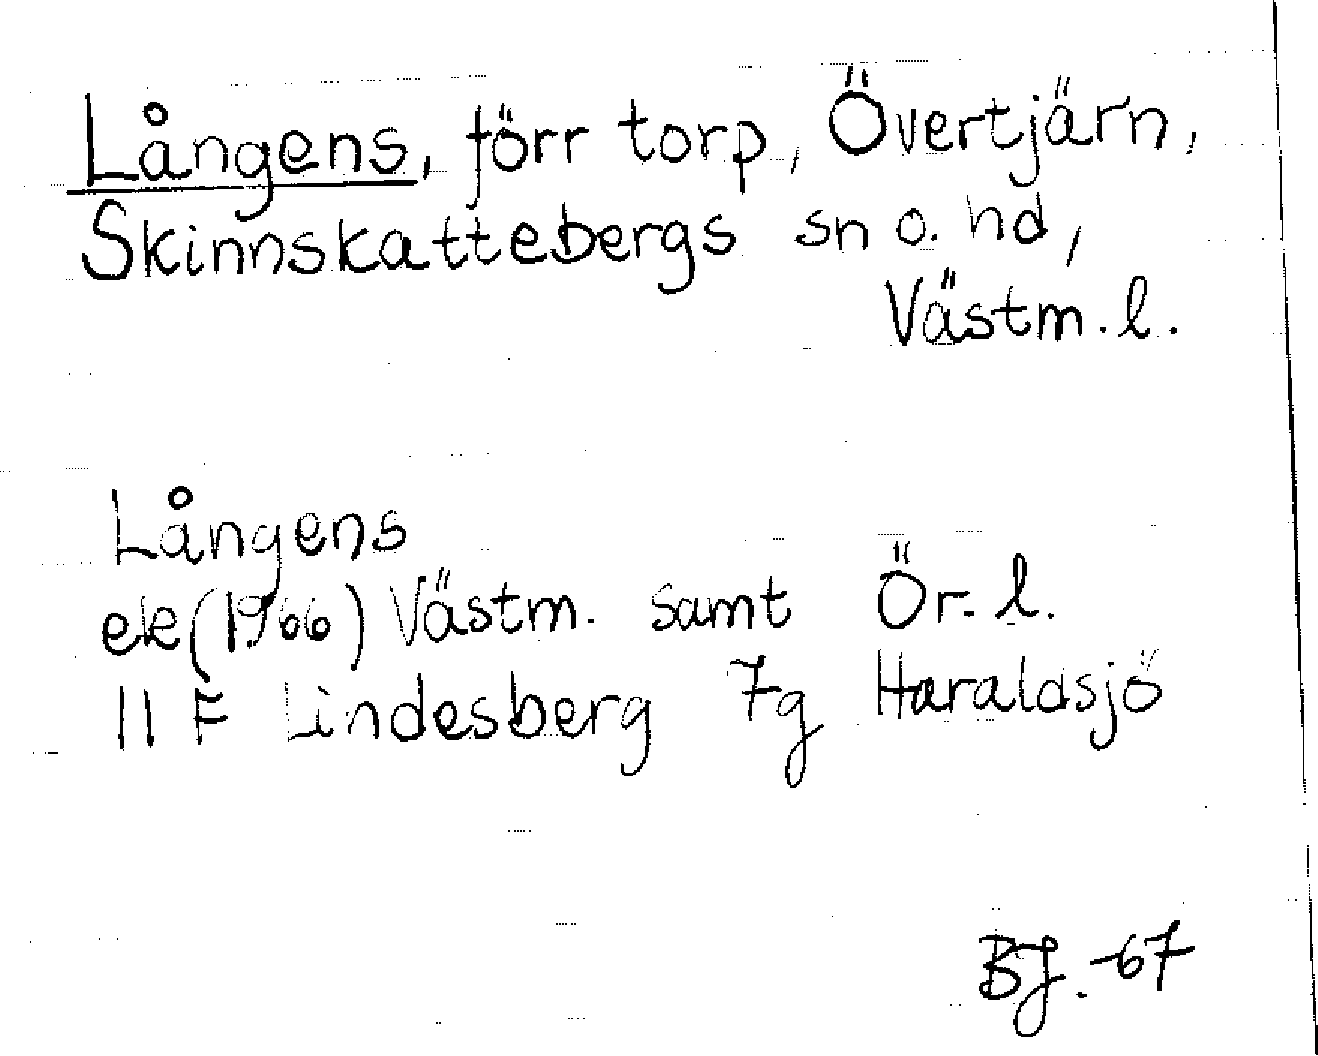 Långens, förr torp, Övertjärn,
Skinnskattebergs sn o. hd,
Västm. l.
Långens
ek (1966) Västm. samt Ör. l.
11 F Lindesberg 7g Haraldsjö
BJ. -67